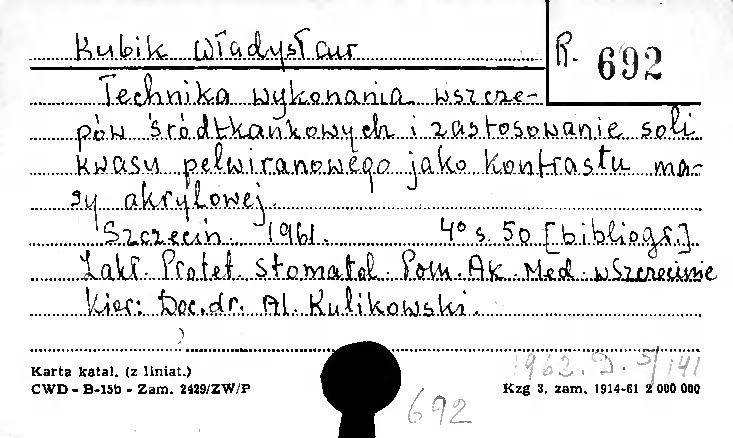 Kubik Władysław
R. 692
Technika wykonania wszcze-
pów śródtkankowych i zastosowanie soli
kwasu pelwiranowego jako kontrastu ma-
sy akrylowej.
Szczecin. 1961. 4° s. 50 [bibliogr.].
Zakł. Protet. Stomatol. Pom. Ak. Med. w Szczecinie
Kier: Doc. dr. Al. Kulikowski.
Karta katal. (z liniat.)
CWD - B-15b - Zam. 2429/ZW/P
1962. D. 5/141
Kzg 3, zam. 1914-61 2 000 000
692